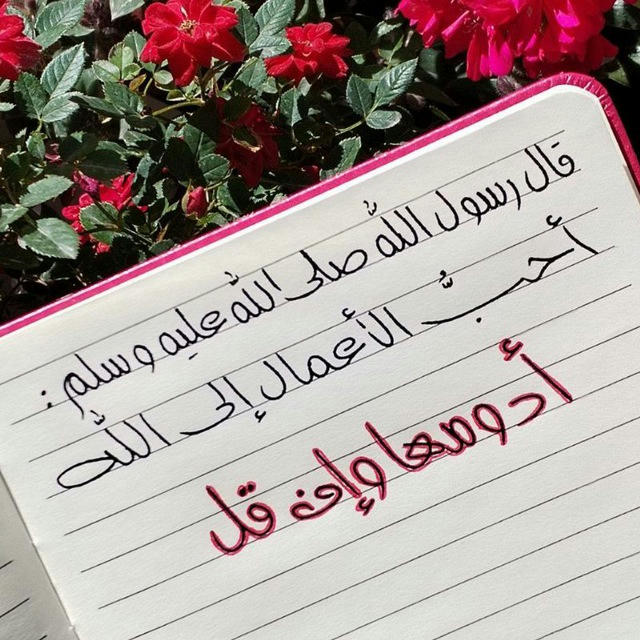 قال رسول اللّه صلى اللّه عليه وسلم :
أحبُّ الأعمال إلى اللّه
أدومها وإن قل